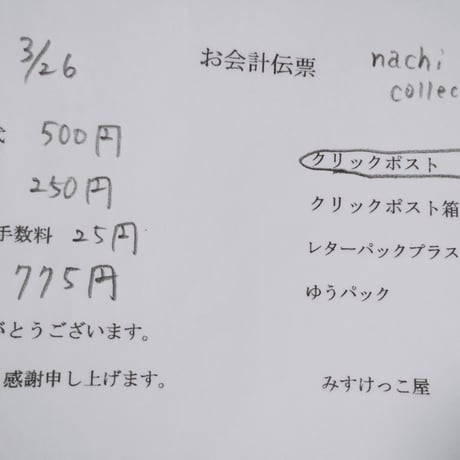 3/26
お会計伝票
nachi
collec
代 500円
250円
手数料 25円
775円
がとうございます。
感謝申し上げます。
クリックポスト
クリックポスト箱
レターパックプラス
ゆうパック
みすけっこ屋